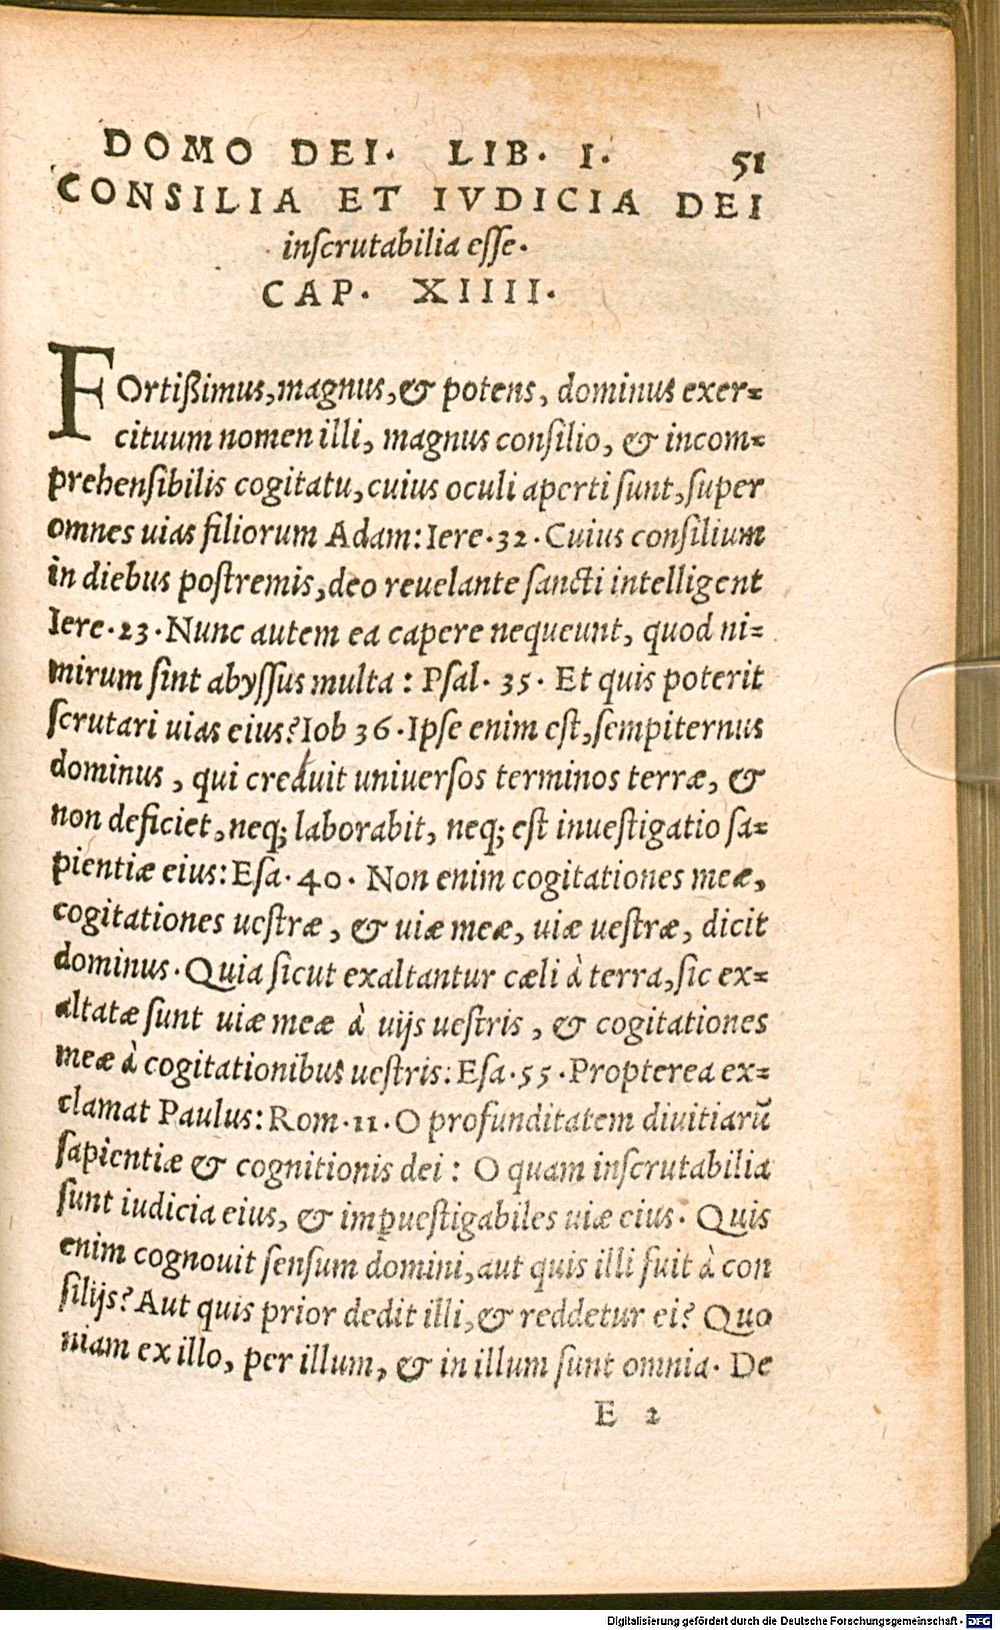 DOMO DEI. LIB. I. 51
CONSILIA ET IVDICIA DEI
inſcrutabilia eſſe.
CAP. XIIII.
FOrtißimus, magnus, & potens, dominus exer=
cituum nomen illi, magnus conſilio, & incom=
prehenſibilis cogitatu, cuius oculi aperti ſunt, ſuper
omnes uias filiorum Adam: Iere. 32. Cuius conſilium
in diebus poſtremis, deo reuelante ſancti intelligent
Iere. 23. Nunc autem ea capere nequeunt, quod ni=
mirum ſint abyſſus multa: Pſal. 35. Et quis poterit
ſcrutari uias eius? Iob 36. Ipſe enim eſt, ſempiternus
dominus, qui creauit uniuerſos terminos terræ, &
non deficiet, neq; laborabit, neq; eſt inueſtigatio ſa=
pientiæ eius: Eſa. 40. Non enim cogitationes meæ,
cogitationes ueſtræ, & uiæ meæ, uiæ ueſtræ, dicit
dominus. Quia ſicut exaltantur cæli à terra, ſic ex=
altatæ ſunt uiæ meæ à uijs ueſtris, & cogitationes
meæ à cogitationibus ueſtris: Eſa. 55. Propterea ex=
clamat Paulus: Rom. 11. O profunditatem diuitiarũ
ſapientiæ & cognitionis dei: O quam inſcrutabilia
ſunt iudicia eius, & imꝑueſtigabiles uiæ eius. Quis
enim cognouit ſenſum domini, aut quis illi fuit à con
ſilijs? Aut quis prior dedit illi, & reddetur ei? Quo
niam ex illo, per illum, & in illum ſunt omnia. De
E 2
Digitalisierung gefördert durch die Deutsche Forschungsgemeinschaft - DFG